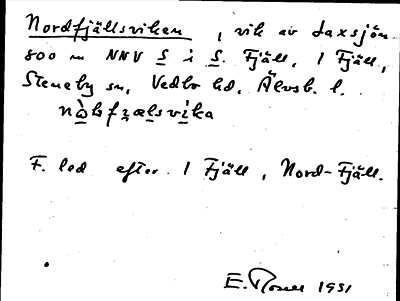 Nordfjällsviken , vik av Laxsjön
800 m NNV S i S. Fjäll, 1 Fjäll,
Steneby sn, Vedbo hd, Älvsb. l.
F. led efter 1 Fjäll, Nord-Fjäll.
E. 1931